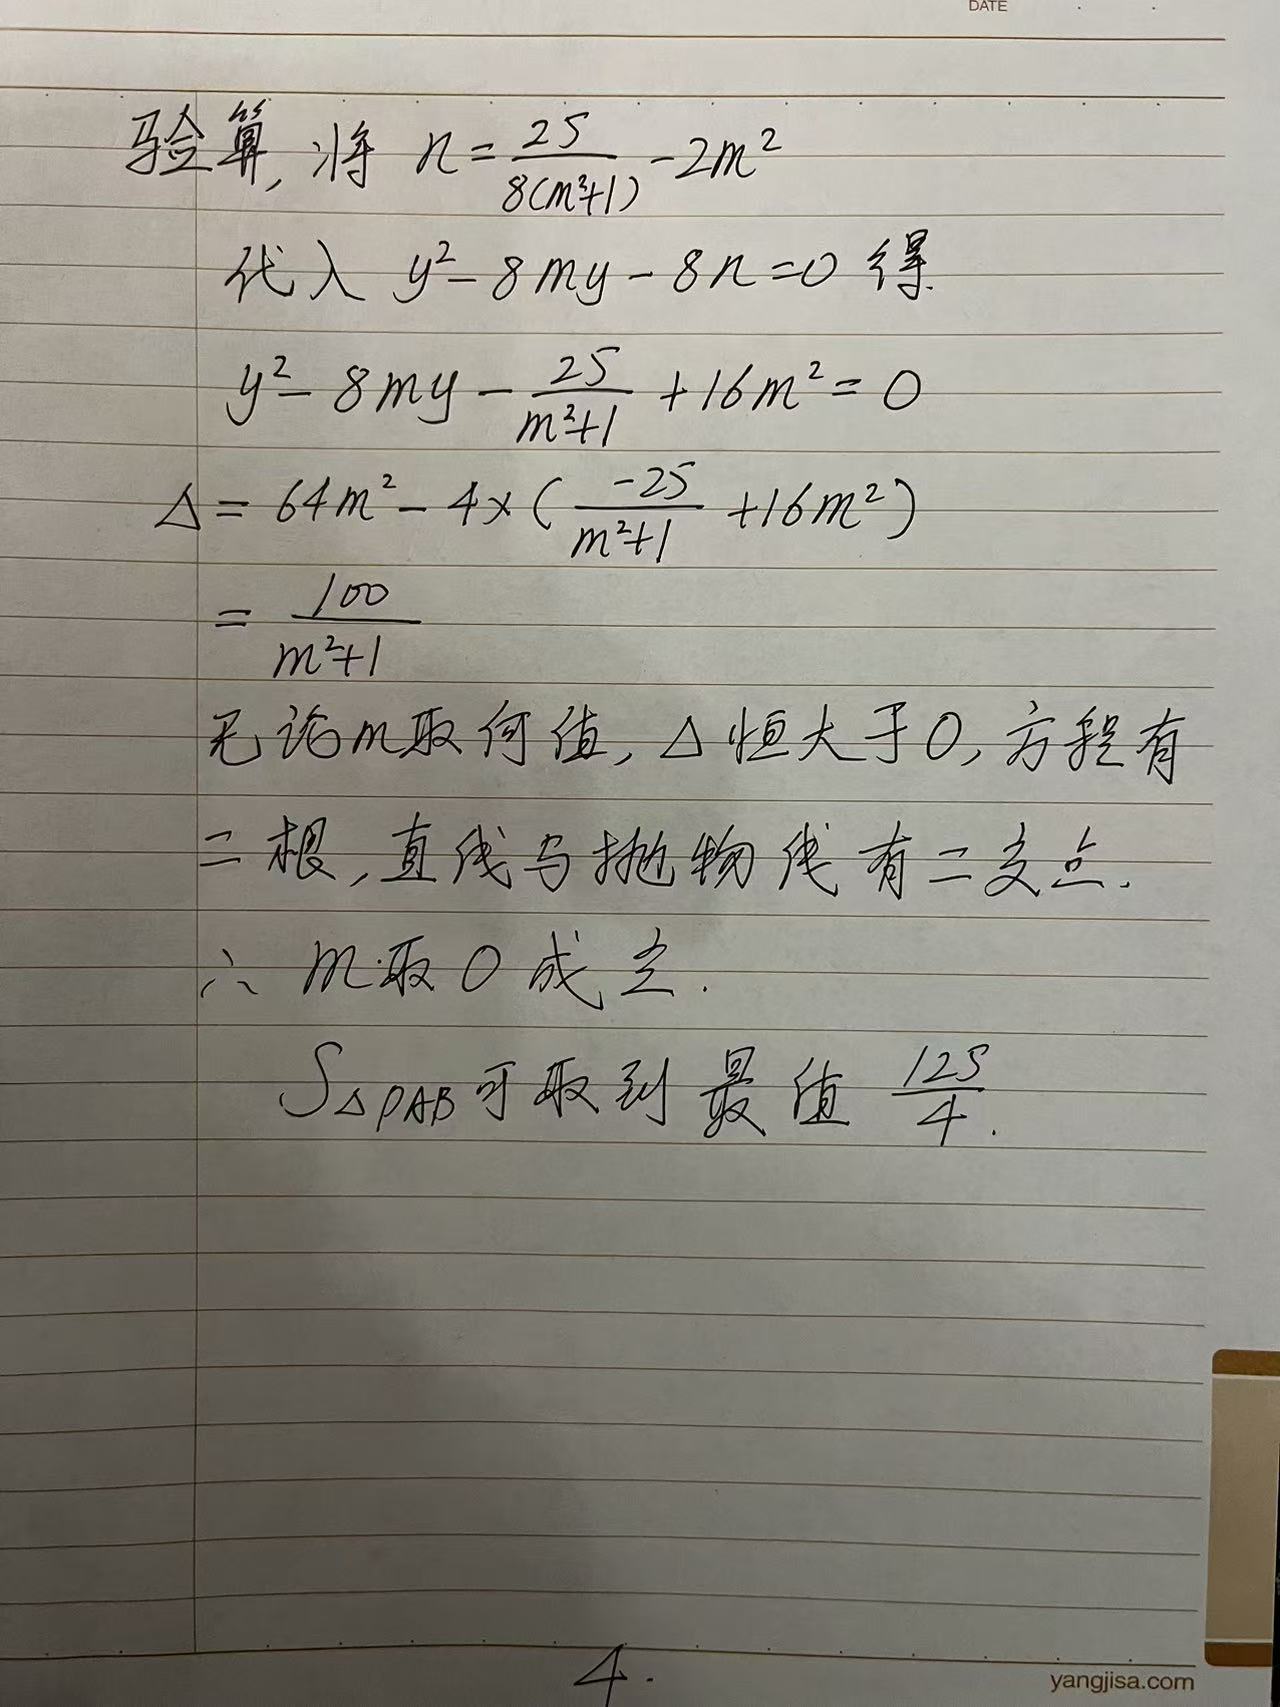 DATE
验算,将 n=25/8(m²+1) -2m²
代入 y²-8my-8n=0 得
y²-8my-25/(m²+1)+16m²=0
Δ=64m²-4×(-25/(m²+1)+16m²)
=100/(m²+1)
无论m取何值,Δ恒大于0,方程有
二根,直线与抛物线有二交点.
∴ m取0成立.
S△PAB可取到最值 125/4.
4.
yangjisa.com